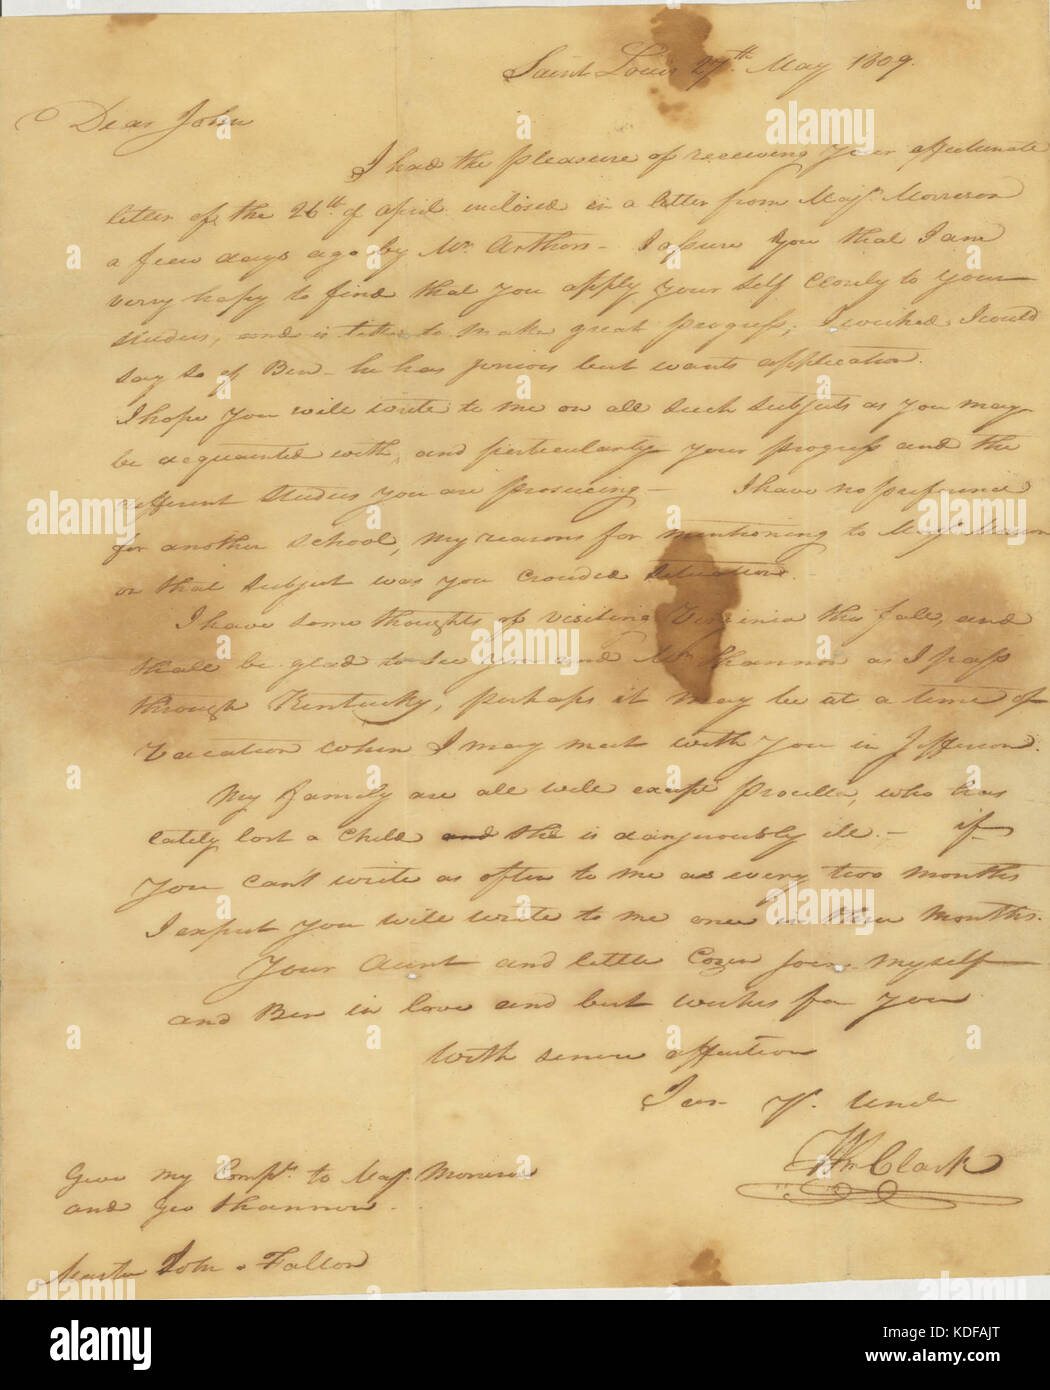 Saint Louis 27th May 1809.
Dear John
I had the pleasure of receiving your affectunate
letter of the 26th of april inclosed in a letter from Majr. Morrison
a few days ago by Mr. Arthors - I assure you that I am
verry hapy to find that you apply your self Closely to your
studies, and is to make great progress; I wished I could
say so of Ben - he has jenious but wants application.
I hope you will write to me on all such subjects as you may
be acquainted with, and perticularly your progress and the
different studies you are prosueing - I have no preference
for another school, my reasons for mentioning to Majr.
on that subject was you crouded situation. -
I have some thoughts of visiting Virginia this fall, and
shall be glad to see you and Mr. Shannon as I pass
through Kentucky, perhaps it may be at a time of
Vacation when I may meet with you in Jefferson.
My family are all well except Procilla, who has
lately lost a child and she is dangerously ill. - if
you can't write as often to me as every two months
I expect you will write to me once in three Months.
Your Aunt and little Cozen join myself
and Ben in love and best wishes for you
With sincere affection
Wm Clark
Give my Compts. to Majr. Morrison
and Geo Shannon.
Master John o Fallon
a alamy alamy
alamy
Image ID: KDFAJT
www.alamy.com